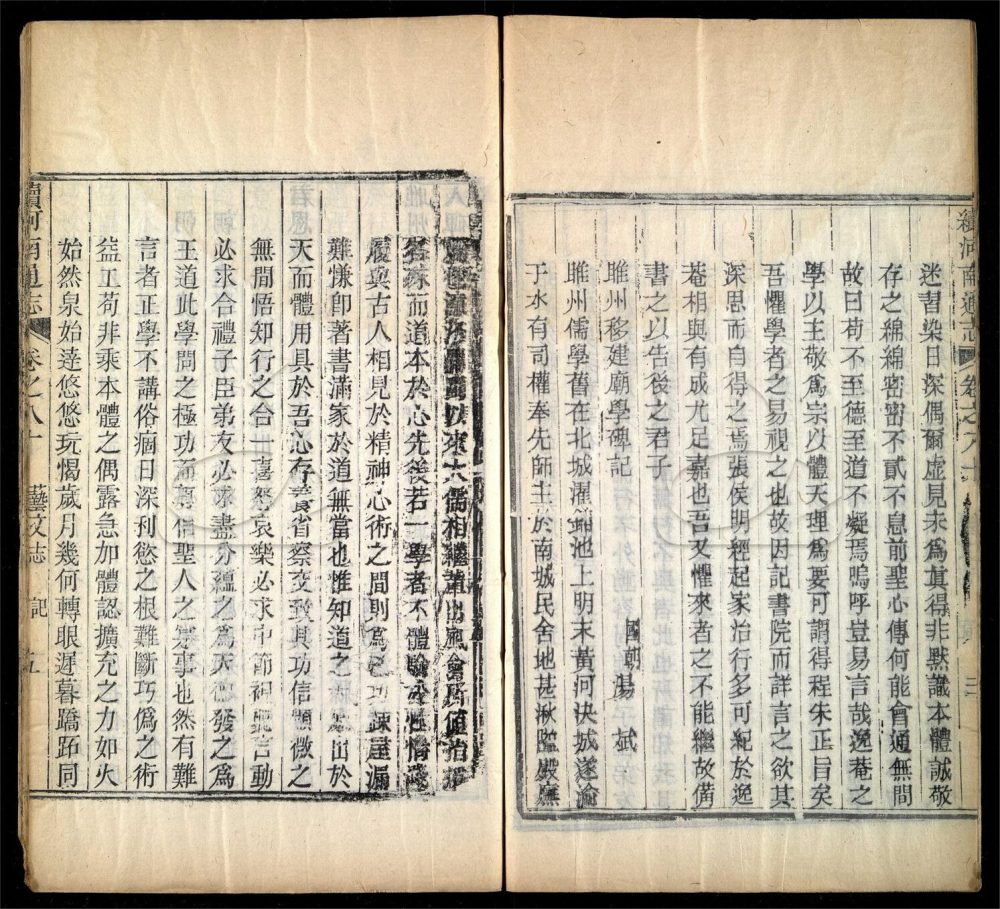 續河南通志 卷之八十 三
迷習染日深偶爾虛見未為真得非默識本體誠敬
存之綿綿密密不貳不息前聖心傳何能會通無間
故曰苟不至德至道不凝焉嗚呼豈易言哉逸菴之
學以主敬為宗以體天理為要可謂得程朱正旨矣
吾懼學者之易視之也故因記書院而詳言之欲其
深思而自得之焉張侯明經起家治行多可紀於逸
菴相與有成尤足嘉也吾又懼來者之不能繼故備
書之以告後之君子
睢州移建廟學碑記
國朝 湯 斌
睢州儒學舊在北城濯錦池上明末黃河決城遂淪
于水有司權奉先師主於南城民舍地甚湫隘殿廡
大儒相繼輩出風會所值指授
各殊而道本於心先後若一學者不體驗於性情踐
履與古人相見於精神心術之間則為已功疎屋漏
難慊即著書滿家於道無當也惟知道之出於
天而體用具於吾心存養省察交致其功信顯微之
無間悟知行之合一喜怒哀樂必求中節視聽言動
必求合禮子臣弟友必求盡分蘊之為天德發之為
王道此學問之極功而尊信聖人之實事也然有難
言者正學不講俗痼日深利慾之根難斷巧偽之術
益工苟非乘本體之偶露急加體認擴充之力如火
始然泉始達悠悠玩愒歲月幾何轉眼遲暮蹻跖同
續河南通志 卷之八十 藝文志 記 五